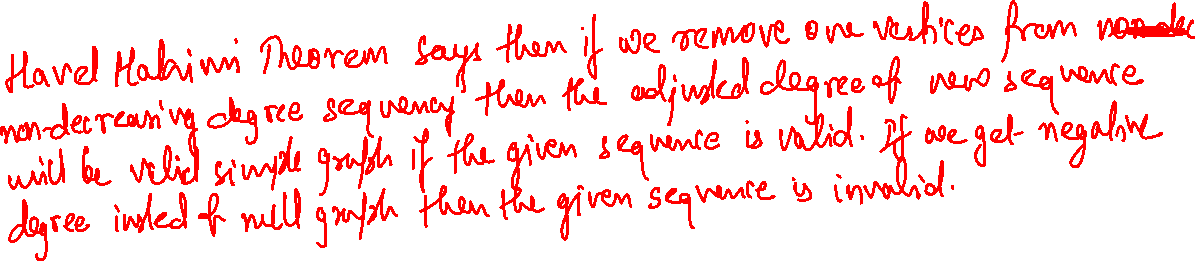 Havel Hakimi Theorem says then if we remove one vertices from
non-decreasing degree sequency then the adjusted degree of new sequence
will be valid simple graph if the given sequence is valid. If we get negative
degree insted of null graph then the given sequence is invalid.